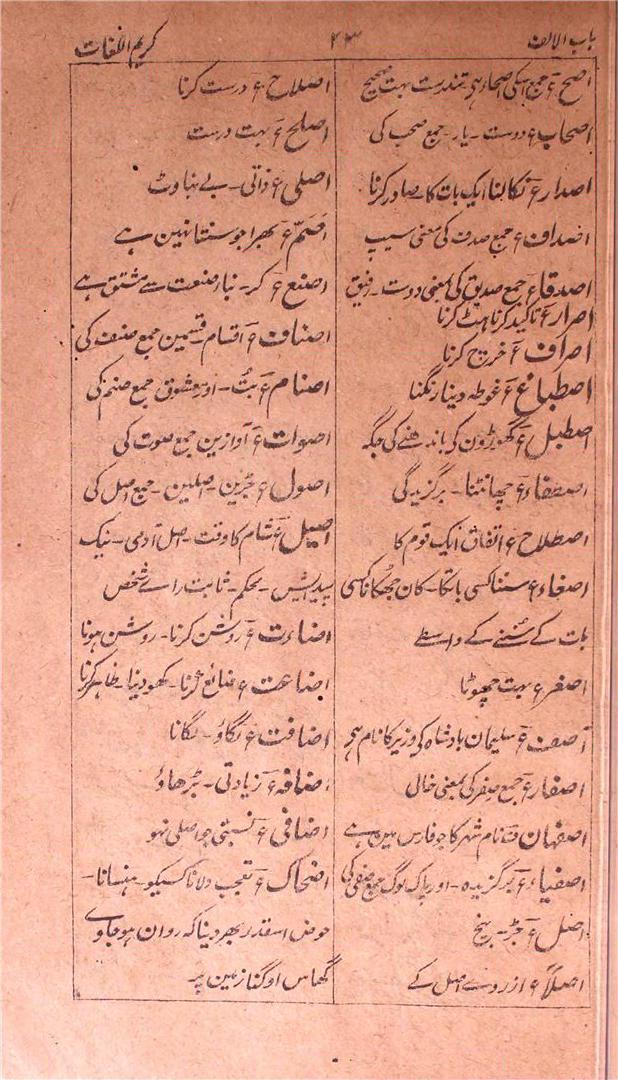 باب الالف ۴۳ کریم اللغات
اصح ع جمع اسکی اصحاء ہی تندرست بہت صحیح
اصحاب ع دوست - یار - جمع صحب کی
اصدار ع نکالنا ایک بات کا صادر کرنا
اصداف ع جمع صدف کی معنی سیپ
اصدقاء ع جمع صدیق کی بمعنی دوست - رفیق
اصرار ع تاکید کرنا ہٹ کرنا
اصراف ع خرچ کرنا
اصطباغ ع غوطہ دینا رنگنا
اصطبل ع گھوڑون کو باندھنے کی جگہ
اصطفاء ع چھانٹنا - برگزیدگی
اصطلاح ع اتفاق ایک قوم کا
اصغاء ع سننا کسی بات کا - کان جھکانا کسی
بات کے سننے کے واسطے
اصغر ع بہت چھوٹا
آصف ع سلیمان بادشاہ کی وزیر کا نام ہی
اصفار ع جمع صفر کی بمعنی خالی
اصفہان ف نام شہر کا جو فارس مین ہے
اصفیاء ع برگزیدہ - اور پاک لوگ جمع صفی کی
اصل ع جڑ - بیخ
اصلاً ع از روے اصل کے
اصلاح ع درست کرنا
اصلح ع بہت درست
اصلی ع ذاتی - بے بناوٹ
اصم ع بھرا جو سنتا نہین ہے
اصنع ع کر - بنا صنعت سے مشتق ہے
اصناف ع اقسام - قسمین جمع صنف کی
اصنام ع بُت - اور معشوق جمع صنم کی
اصوات ع آوازین جمع صوت کی
اصول ع جڑین - اصلین - جمع اصل کی
اصیل ع شام کا وقت - اصل آدمی - نیک
پیدایش - محکم - ثابت راے شخص
اضاءت ع روشن کرنا - روشن ہونا
اضاعت ع ضائع کرنا - کھو دینا - ظاہر کرنا
اضافت ع لگاؤ - لگانا
اضافہ ع زیادتی - بڑھاؤ
اضافی ع نسبتی جو اصلی نہو
اضحاک ع تعجب دلانا کسیکو - ہنسانا -
حوض اسقدر بھر دینا کہ روان ہو جاوے
گھاس اوگنا زمین پر